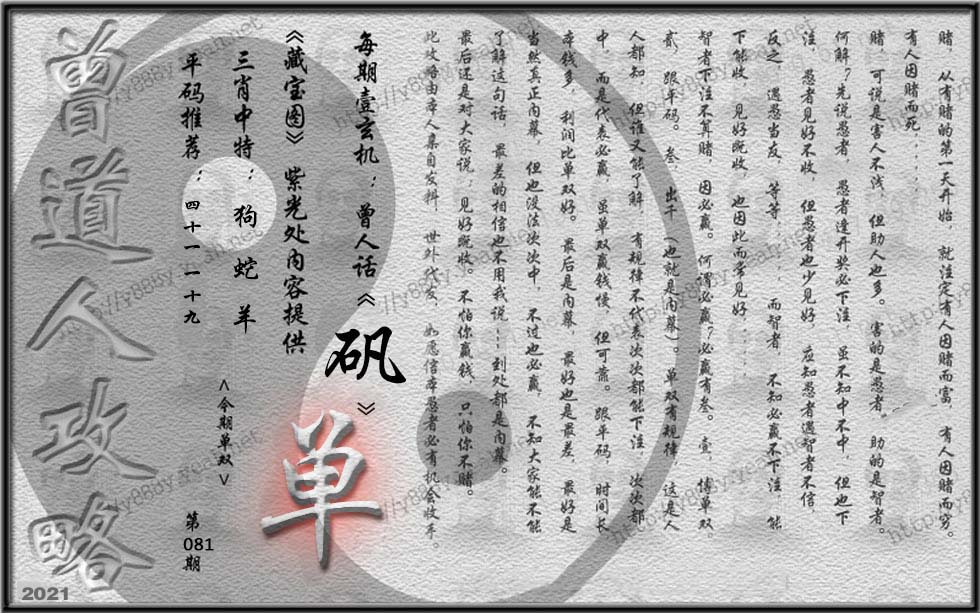 赌，从有赌的第一天开始，就注定有人因赌而富，有人因赌而穷。
有人因赌而死......
赌，可说是害人不浅，但助人也多。害的是愚者，助的是智者。
何解？先说愚者，愚者逢开奖必下注，虽不知中不中，但也下
注，愚者见好不收，但愚者也少见好，应知愚者遇智者不信，
反之，遇愚当友，等等......而智者，不知必赢不下注，能
下能收，见好既收，也因此而常见好......
智者下注不算赌，因必赢。何谓必赢？必赢有叁。壹，博单双，
贰，跟平码。叁，出千（也就是内幕）。单双有规律，这是人
人都知，但谁又能了解，有规律不代表次次都能下注，次次都
中，而是代表必赢，虽单双赢钱慢，但可靠。跟平码，时间长
本钱多，利润比单双好。最后是内幕，最好也是最差，最好是
当然真正内幕，但也没法次次中，不过也必赢，不知大家能不能
了解这句话，最差的相信也不用我说...到处都是内幕。
最后还是对大家说：见好既收。不怕你赢钱，只怕你不赌。
此攻略由本人亲自发辩，世外代发，如愿信本愚者必有机会收手。
每期壹玄机：曾人话《矾》
《藏宝图》紫光处内容提供
三肖中特：狗 蛇 羊
平码推荐：四十一 一十九
<今期单双>
单
第081期
曾道人攻略
2021